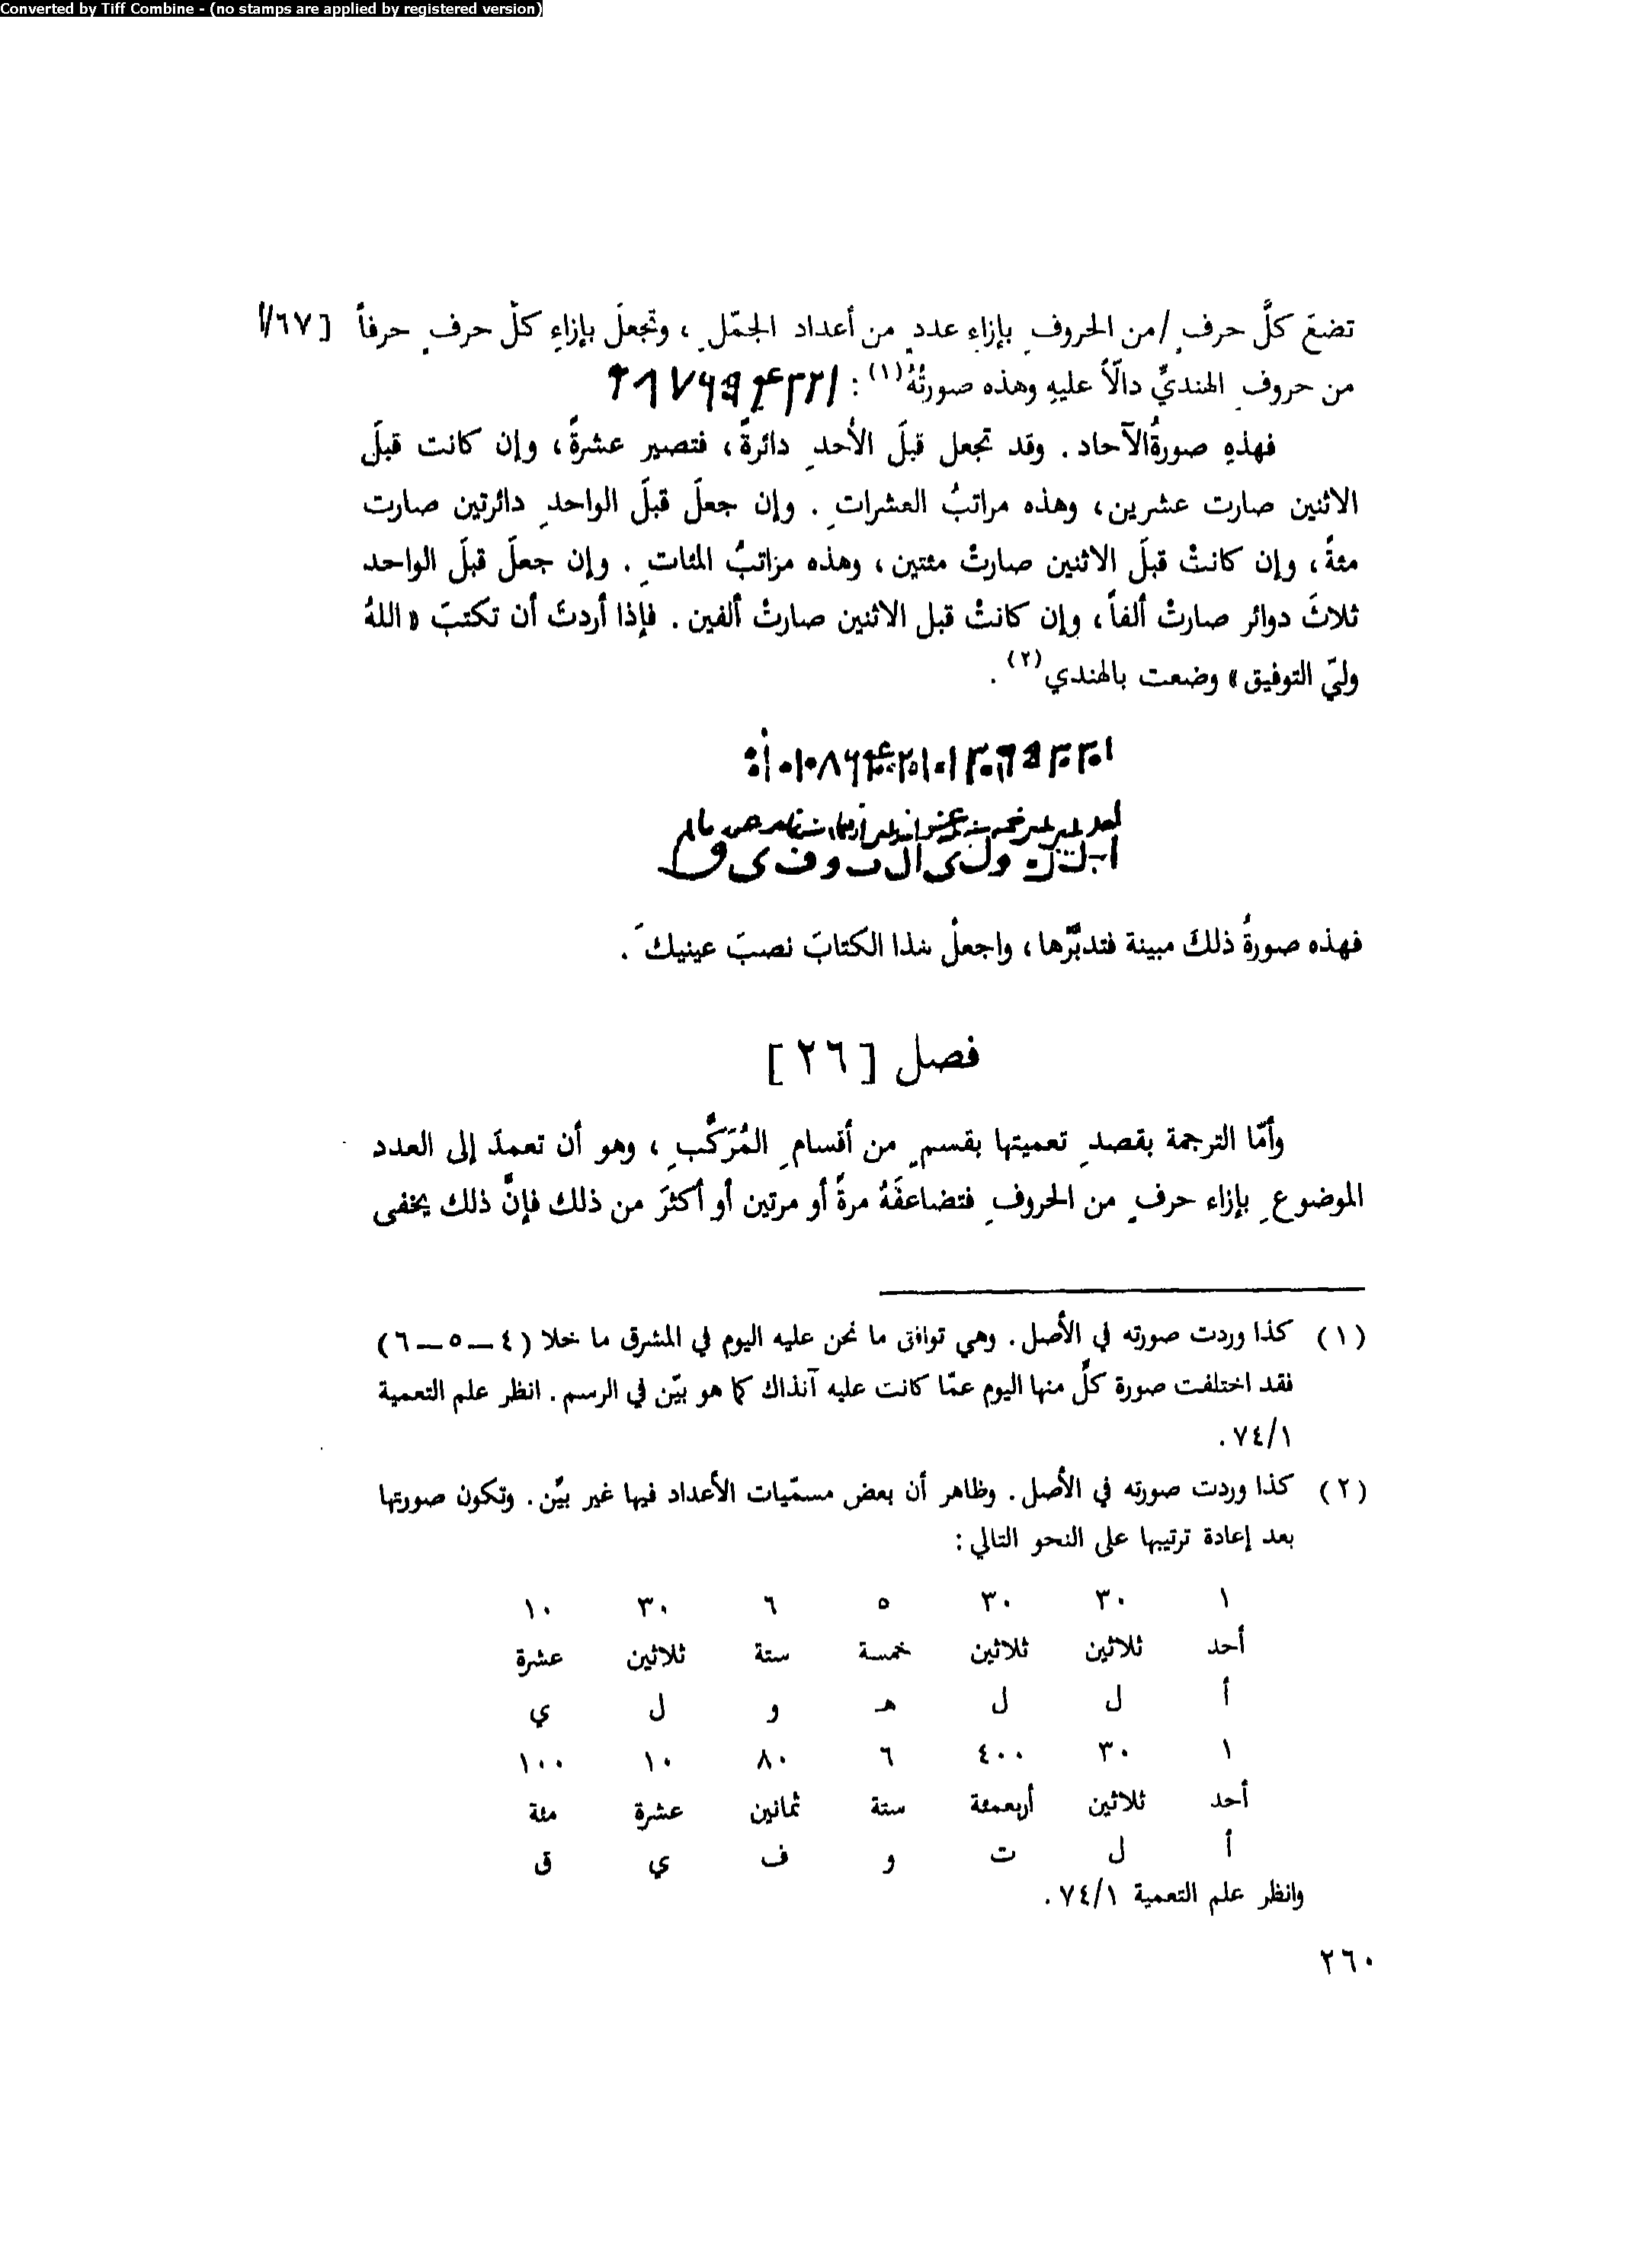 Converted by Tiff Combine - (no stamps are applied by registered version)
تضعَ كلَّ حرفٍ / من الحروفِ بإزاءِ عددٍ من أعداد الجمّلِ ، وتجعلَ بإزاءِ كلّ حرفٍ حرفاً [٦٧/أ
من حروفِ الهنديِّ دالّاً عليهِ وهذه صورتُهُ(١) :
فهذهِ صورةُ الآحاد . وقد تجعل قبلَ الأحدِ دائرةً ، فتصير عشرةً ، وإن كانت قبلَ
الاثنين صارت عشرين ، وهذه مراتبُ العشراتِ . وإن جعلَ قبلَ الواحدِ دائرتين صارت
مئةً ، وإن كانتْ قبلَ الاثنين صارتْ مئتين ، وهذه مراتبُ المئاتِ . وإن جعلَ قبلَ الواحد
ثلاثَ دوائر صارتْ ألفاً ، وإن كانتْ قبل الاثنين صارتْ ألفين . فإذا أردتَ أن تكتبَ « اللهُ
وليّ التوفيق » وضعت بالهندي(٢) .
فهذه صورةُ ذلكَ مبينة فتدبَّرْها ، واجعلْ هذا الكتابَ نصبَ عينيكَ .
فصل [ ٢٦ ]
وأمّا الترجمة بقصدِ تعميتها بقسمٍ من أقسامِ المُرَكَّبِ ، وهو أن تعمدَ إلى العدد
الموضوعِ بإزاء حرفٍ من الحروفِ فتضاعفَهُ مرةً أو مرتين أو أكثرَ من ذلك فإنَّ ذلك يخفى
(١) كذا وردت صورته في الأصل . وهي توافق ما نحن عليه اليوم في المشرق ما خلا ( ٤ – ٥ – ٦ )
فقد اختلفت صورة كلٍّ منها اليوم عمّا كانت عليه آنذاك كما هو بيّن في الرسم . انظر علم التعمية
٧٤/١ .
(٢) كذا وردت صورته في الأصل . وظاهر أن بعض مسمّيات الأعداد فيها غير بيِّن . وتكون صورتها
بعد إعادة ترتيبها على النحو التالي :
١ ٣٠ ٣٠ ٥ ٦ ٣٠ ١٠
أحد ثلاثين ثلاثين خمسة ستة ثلاثين عشرة
أ ل ل هـ و ل ي
١ ٣٠ ٤٠٠ ٦ ٨٠ ١٠ ١٠٠
أحد ثلاثين أربعمئة ستة ثمانين عشرة مئة
أ ل ت و ف ي ق
وانظر علم التعمية ٧٤/١ .
٢٦٠